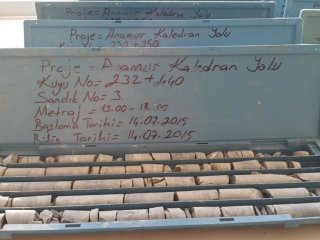 Proje = Anamur Kaledran Yolu
Kuyu No = 232+250
Proje = Anamur Kaledran Yolu
Kuyu No = 232+440
Sandık No = 3
Metraj = 13.00 - 18.00
Başlama Tarihi = 14.07.2015
Bitiş Tarihi = 14.07.2015